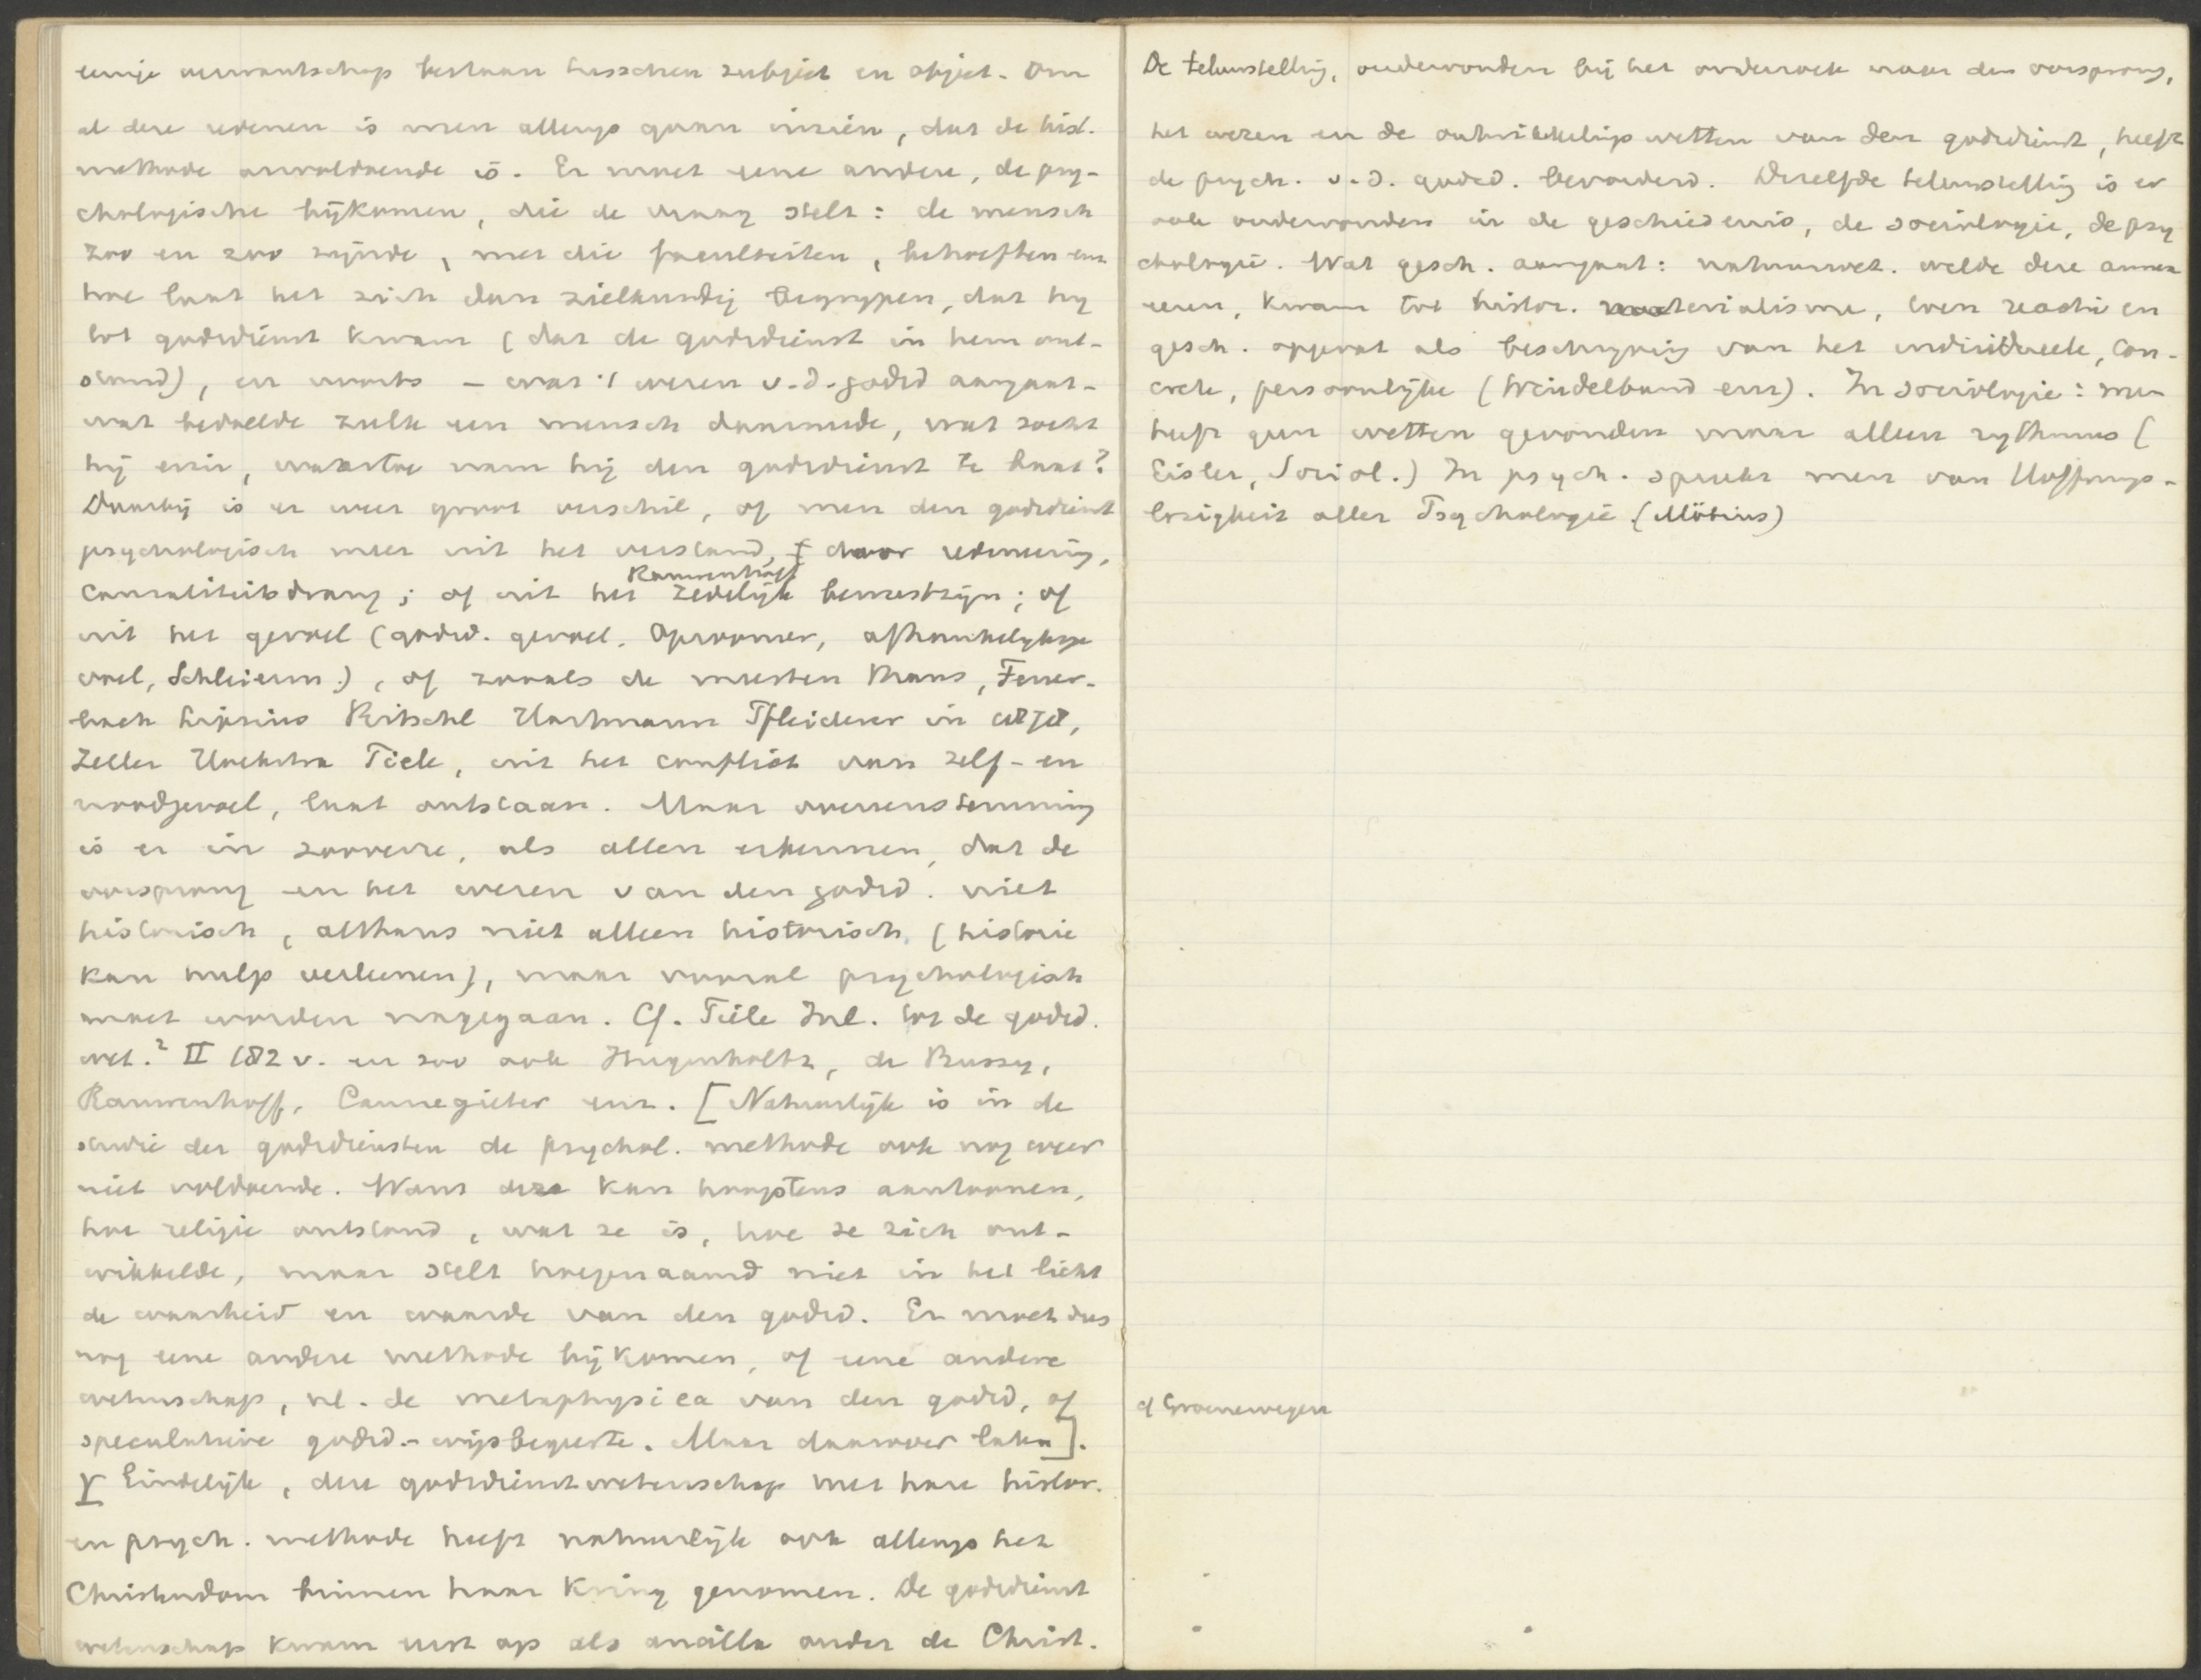 eenige verwantschap bestaan tusschen subject en object. Om
al deze redenen is men allengs gaan inzien, dat de hist.
methode onvoldoende is. Er moet eene andere, de psy-
chologische bijkomen, die de vraag stelt: de mensch
zoo en zoo zijnde, met die faculteiten, behoeften enz
hoe laat het zich dan zielkundig begrypen, dat hy
tot godsdienst kwam (dat de godsdienst in hem ont-
stond), en voorts – wat 't wezen v.d. godsd aangaat –
wat bedoelde zulk een mensch daarmede, wat zocht
hij erin, waartoe nam hij den godsdienst te baat?
Daarbij is er weer groot verschil, of men den godsdienst
psychologisch meer uit het verstand, door redeneering,
causaliteitsdrang; of uit het zedelijk bewustzijn; of
Rauwenhoff
uit het gevoel (godsd. gevoel. Opzoomer, afhankelykhge
voel, Schleierm.), of zooals de meesten Kraus, Feuer-
bach Lipsius Ritschl Hartmann Pfleiderer in 1878,
Zeller Hoekstra Tiele, uit het conflict van zelf- en
noodgevoel, laat ontstaan. Maar overeenstemming
is er in zooverre, als allen erkennen, dat de
oorsprong en het wezen van den godsd. niet
historisch, althans niet alleen historisch, (historie
kan hulp verleenen), maar vooral psychologisch
moet worden nagegaan. Cf. Tiele Inl. tot de godsd.
wet.² II 182 v. en zoo ook Hugenholtz, de Bussy,
Rauwenhoff, Cannegieter enz. [Natuurlijk is in de
studie der godsdiensten de psychol. methode ook nog weer
niet voldoende. Want deze kan hoogstens aantoonen,
hoe religie ontstond, wat ze is, hoe ze zich ont-
wikkelde, maar stelt hoegenaamd niet in het licht
de waarheid en waarde van den godsd. Er moet dus
nog eene andere methode bij komen, of eene andere
wetenschap, nl. de metaphysica van den godsd, of
speculatieve godsd.-wijsbegeerte. Maar daarover later].
γ Eindelijk, deze godsdienstwetenschap met hare histor.
en psych. methode heeft natuurlijk ook allengs het
Christendom binnen haar kring genomen. De godsdienst
wetenschap kwam eerst op als ancilla onder de Christ.
De teleurstelling, ondervonden bij het onderzoek naar den oorsprong,
het wezen en de ontwikkelings wetten van den godsdienst, heeft
de psych. v.d. godsd. bevorderd. Dezelfde teleurstelling is er
ook ondervonden in de geschiedenis, de sociologie, de psy
chologie. Wat gesch. aangaat: natuurwet. wilde deze annex
eeren, kwam tot histor. materialisme, toen reactie en
gesch. opgevat als beschryving van het individueele, con-
crete, persoonlijke (Windelband enz). In sociologie: men
heeft geen wetten gevonden maar alleen rythmus (
Eisler, Sociol.) In psych. spreekt men van Hoffnungs-
losigkeit aller Psychologie (Möbius)
cf Groenewegen